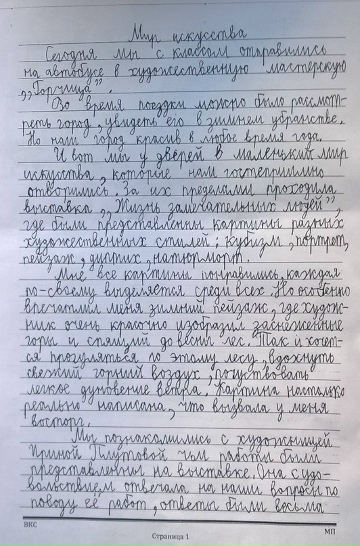 Мир искусства
Сегодня мы с классом отправились
на автобусе в художественную мастерскую
„Горчица".
Во время поездки можно было рассмот-
реть город, увидеть его в зимнем убранстве.
Но наш город красив в любое время года.
И вот мы у дверей в маленький мир
искусства, которые нам гостеприимно
отворились. За их пределами проходила
выставка „Жизнь замечательных людей",
где были представлены картины разных
художественных стилей: кубизм, портрет,
пейзаж, диптих, натюрморт.
Мне все картины понравились, каждая
по-своему выделяется среди всех. Но особенно
впечатлил меня зимний пейзаж, где худож-
ник очень красочно изобразил заснеженные
горы и спящий до весны лес. Так и хочет-
ся прогуляться по этому лесу, вдохнуть
свежий горный воздух, почувствовать
легкое дуновение ветра. Картина настолько
реально написана, что вызвала у меня
восторг.
Мы познакомились с художницей
Ириной Плутовой чьи работы были
представлены на выставке. Она с удо-
вольствием отвечала на наши вопросы по
поводу её работ, ответы были весьма
ВКС МП
Страница 1